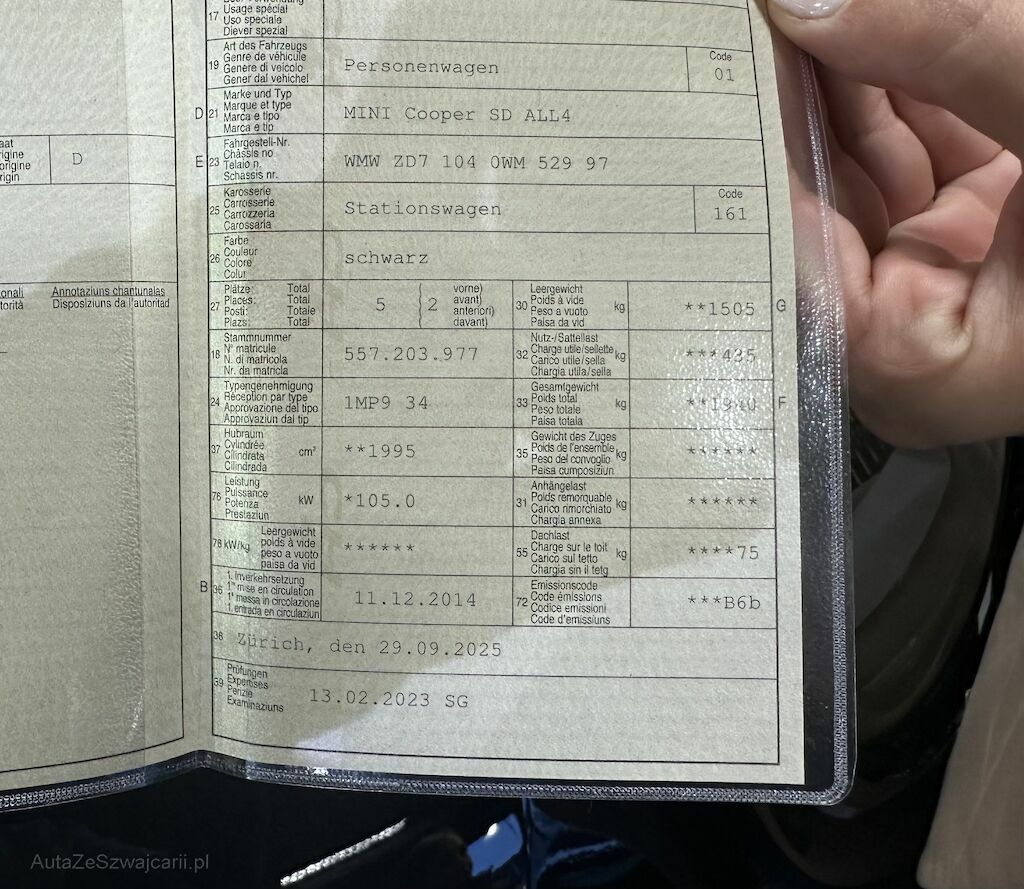 Besondere Verwendung
17 Usage spécial
Uso speciale
Diever spezial
19 Art des Fahrzeugs
Genre de véhicule
Genere di veicolo
Gener dal vehichel
Personenwagen
Code
01
D 21 Marke und Typ
Marque et type
Marca e tipo
Marca e tip
MINI Cooper SD ALL4
E 23 Fahrgestell-Nr.
Châssis no
Telaio n.
Schassis nr.
WMW ZD7 104 0WM 529 97
25 Karosserie
Carrosserie
Carrozzeria
Carossaria
Stationswagen
Code
161
26 Farbe
Couleur
Colore
Colur
schwarz
27 Plätze: Total
Places: Total
Posti: Totale
Plazs: Total
5 { 2
vorne)
avant)
anteriori)
davant)
30 Leergewicht
Poids à vide
Peso a vuoto
Paisa da vid
kg
**1505
G
18 Stammnummer
N° matricule
N. di matricola
Nr. da matricla
557.203.977
32 Nutz-/Sattellast
Charge utile/sellette
Carico utile/sella
Chargia utila/sella
kg
***435
24 Typengenehmigung
Réception par type
Approvazione del tipo
Approvaziun dal tip
1MP9 34
33 Gesamtgewicht
Poids total
Peso totale
Paisa totala
kg
**1940
F
37 Hubraum
Cylindrée
Cilindrata
Cilindrada
cm³
**1995
35 Gewicht des Zuges
Poids de l'ensemble
Peso del convoglio
Paisa cumposiziun
kg
******
76 Leistung
Puissance
Potenza
Prestaziun
kW
*105.0
31 Anhängelast
Poids remorquable
Carico rimorchiato
Chargia annexa
kg
******
78 kW/kg
Leergewicht
poids à vide
peso a vuoto
paisa da vid
******
55 Dachlast
Charge sur le toit
Carico sul tetto
Chargia sin il tetg
kg
****75
B 36 1. Inverkehrsetzung
1re mise en circulation
1a messa in circolazione
1. entrada en circulaziun
11.12.2014
72 Emissionscode
Code émissions
Codice emissioni
Code d'emissiuns
***B6b
38 Zürich, den 29.09.2025
39 Prüfungen
Expertises
Perizie
Examinaziuns
13.02.2023 SG
D
Annotaziuns chantunalas
Disposiziuns da l'autoritad
AutaZeSzwajcarii.pl